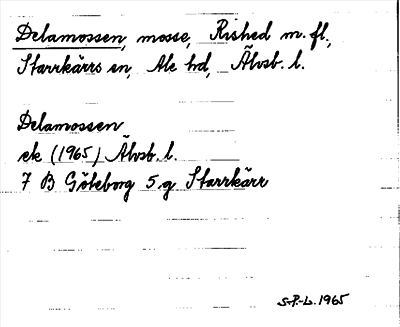 Delamossen, mosse, Rished m. fl.,
Starrkärrs sn, Ale hd, Älvsb. l.
Delamossen
ek (1965) Älvsb. l.
7 B Göteborg 5 g Starrkärr
S-P.-L. 1965